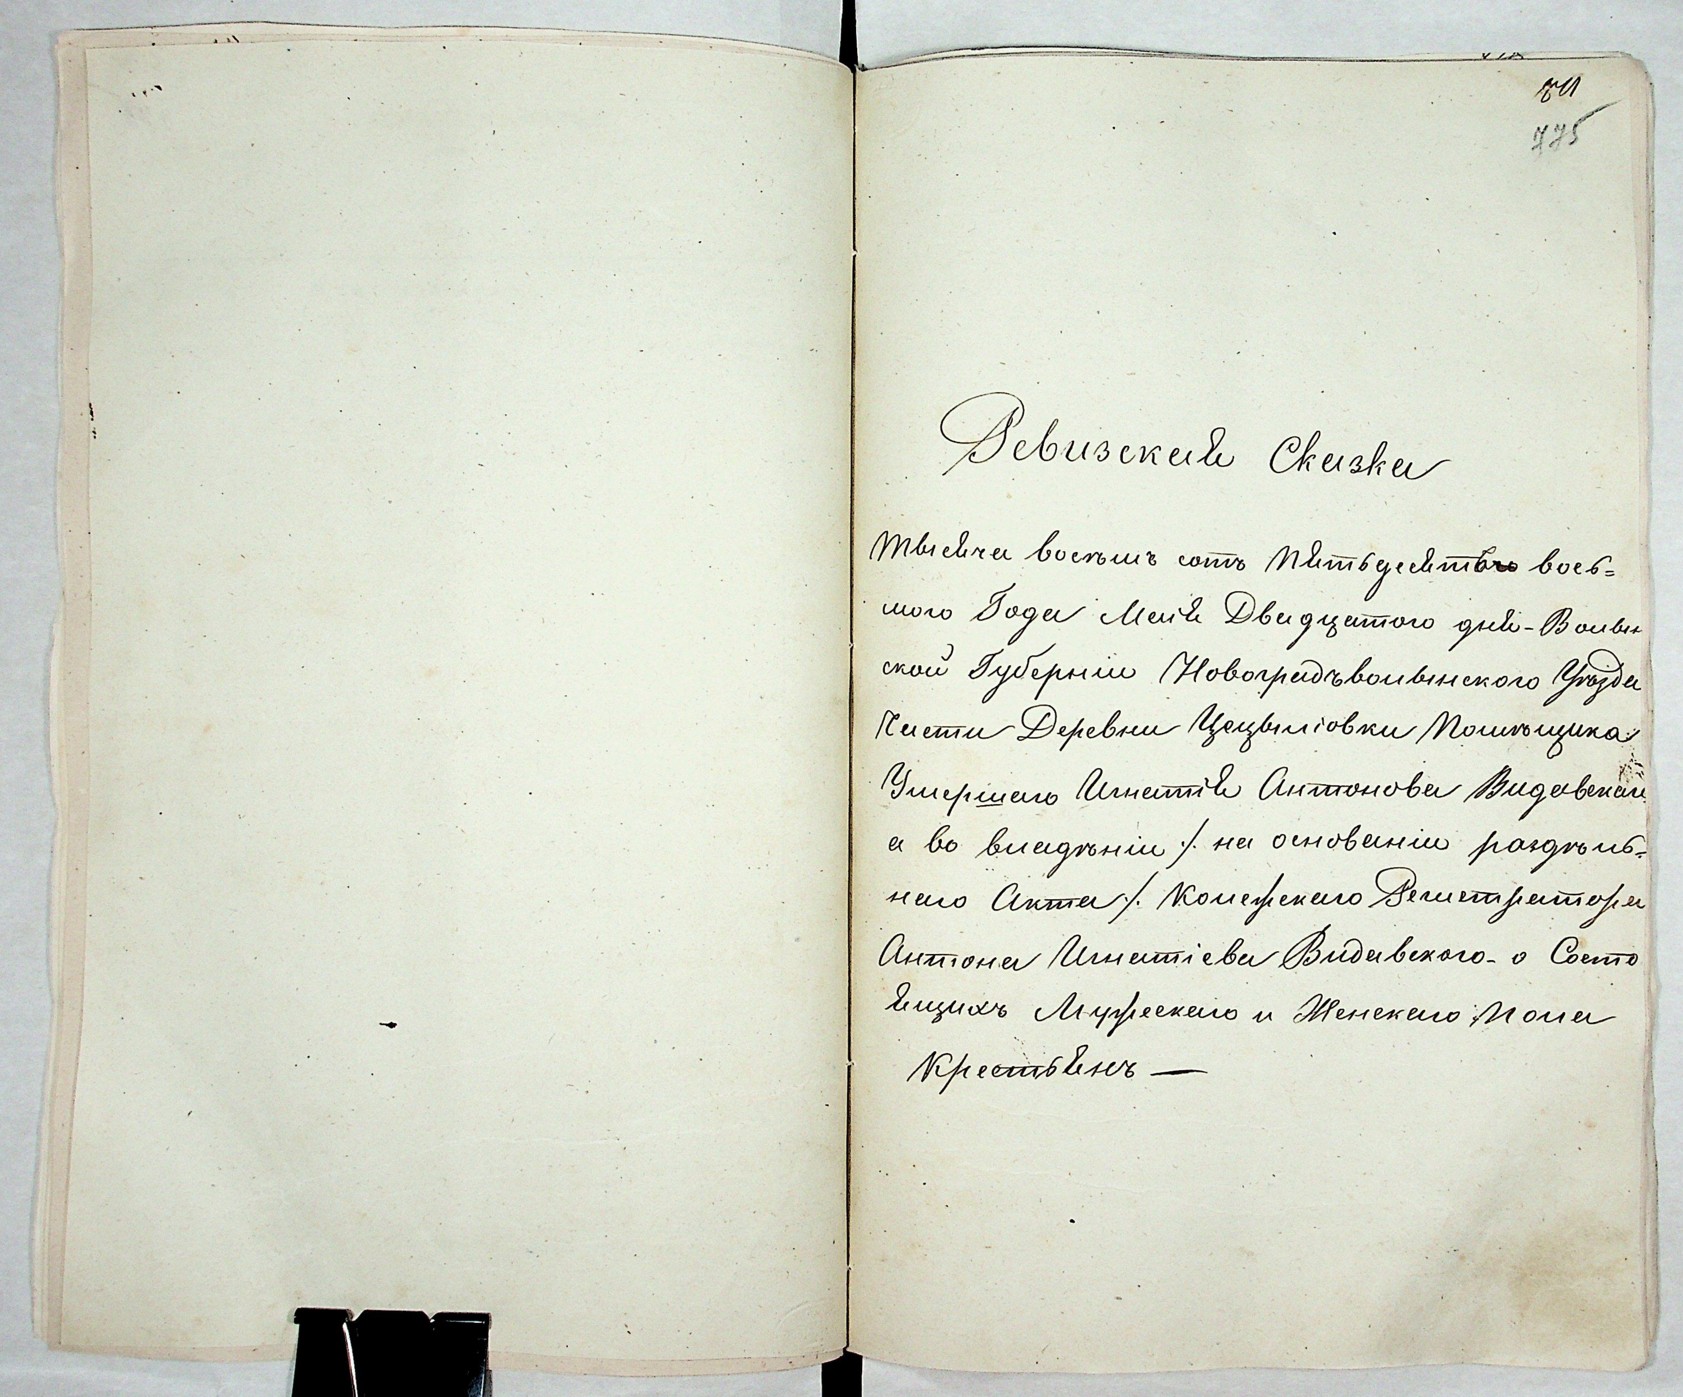 775
Ревизская Сказка
тысяча восѣмь сотъ пятьдесятъ вось=
мого Года Мая Двадцатого дня - Волын
ской Губерніи Новоградъволынского Уѣзда
Части Деревни Цецылiовки Помѣщика
Умершаго Игнатія Антонова Видавскаго
а во владѣніи /. на основаніи раздѣль=
наго Акта /. Колежскаго Регистратора
Антона Игнатіева Видавского - о Состо
ящихъ Мужескаго и Женскаго Пола
Крестьянъ —